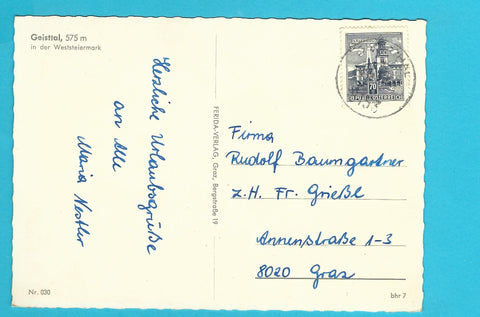 Geisttal, 575 m
in der Weststeiermark
Herzliche Urlaubsgrüße
an Alle
Maria Nestler
FERIDA-VERLAG, Graz, Bergstraße 19
70
REPUBLIK ÖSTERREICH
Firma
Rudolf Baumgartner
z.H. Fr. Grießl
Annenstraße 1-3
8020 Graz
Nr. 030
bhr 7